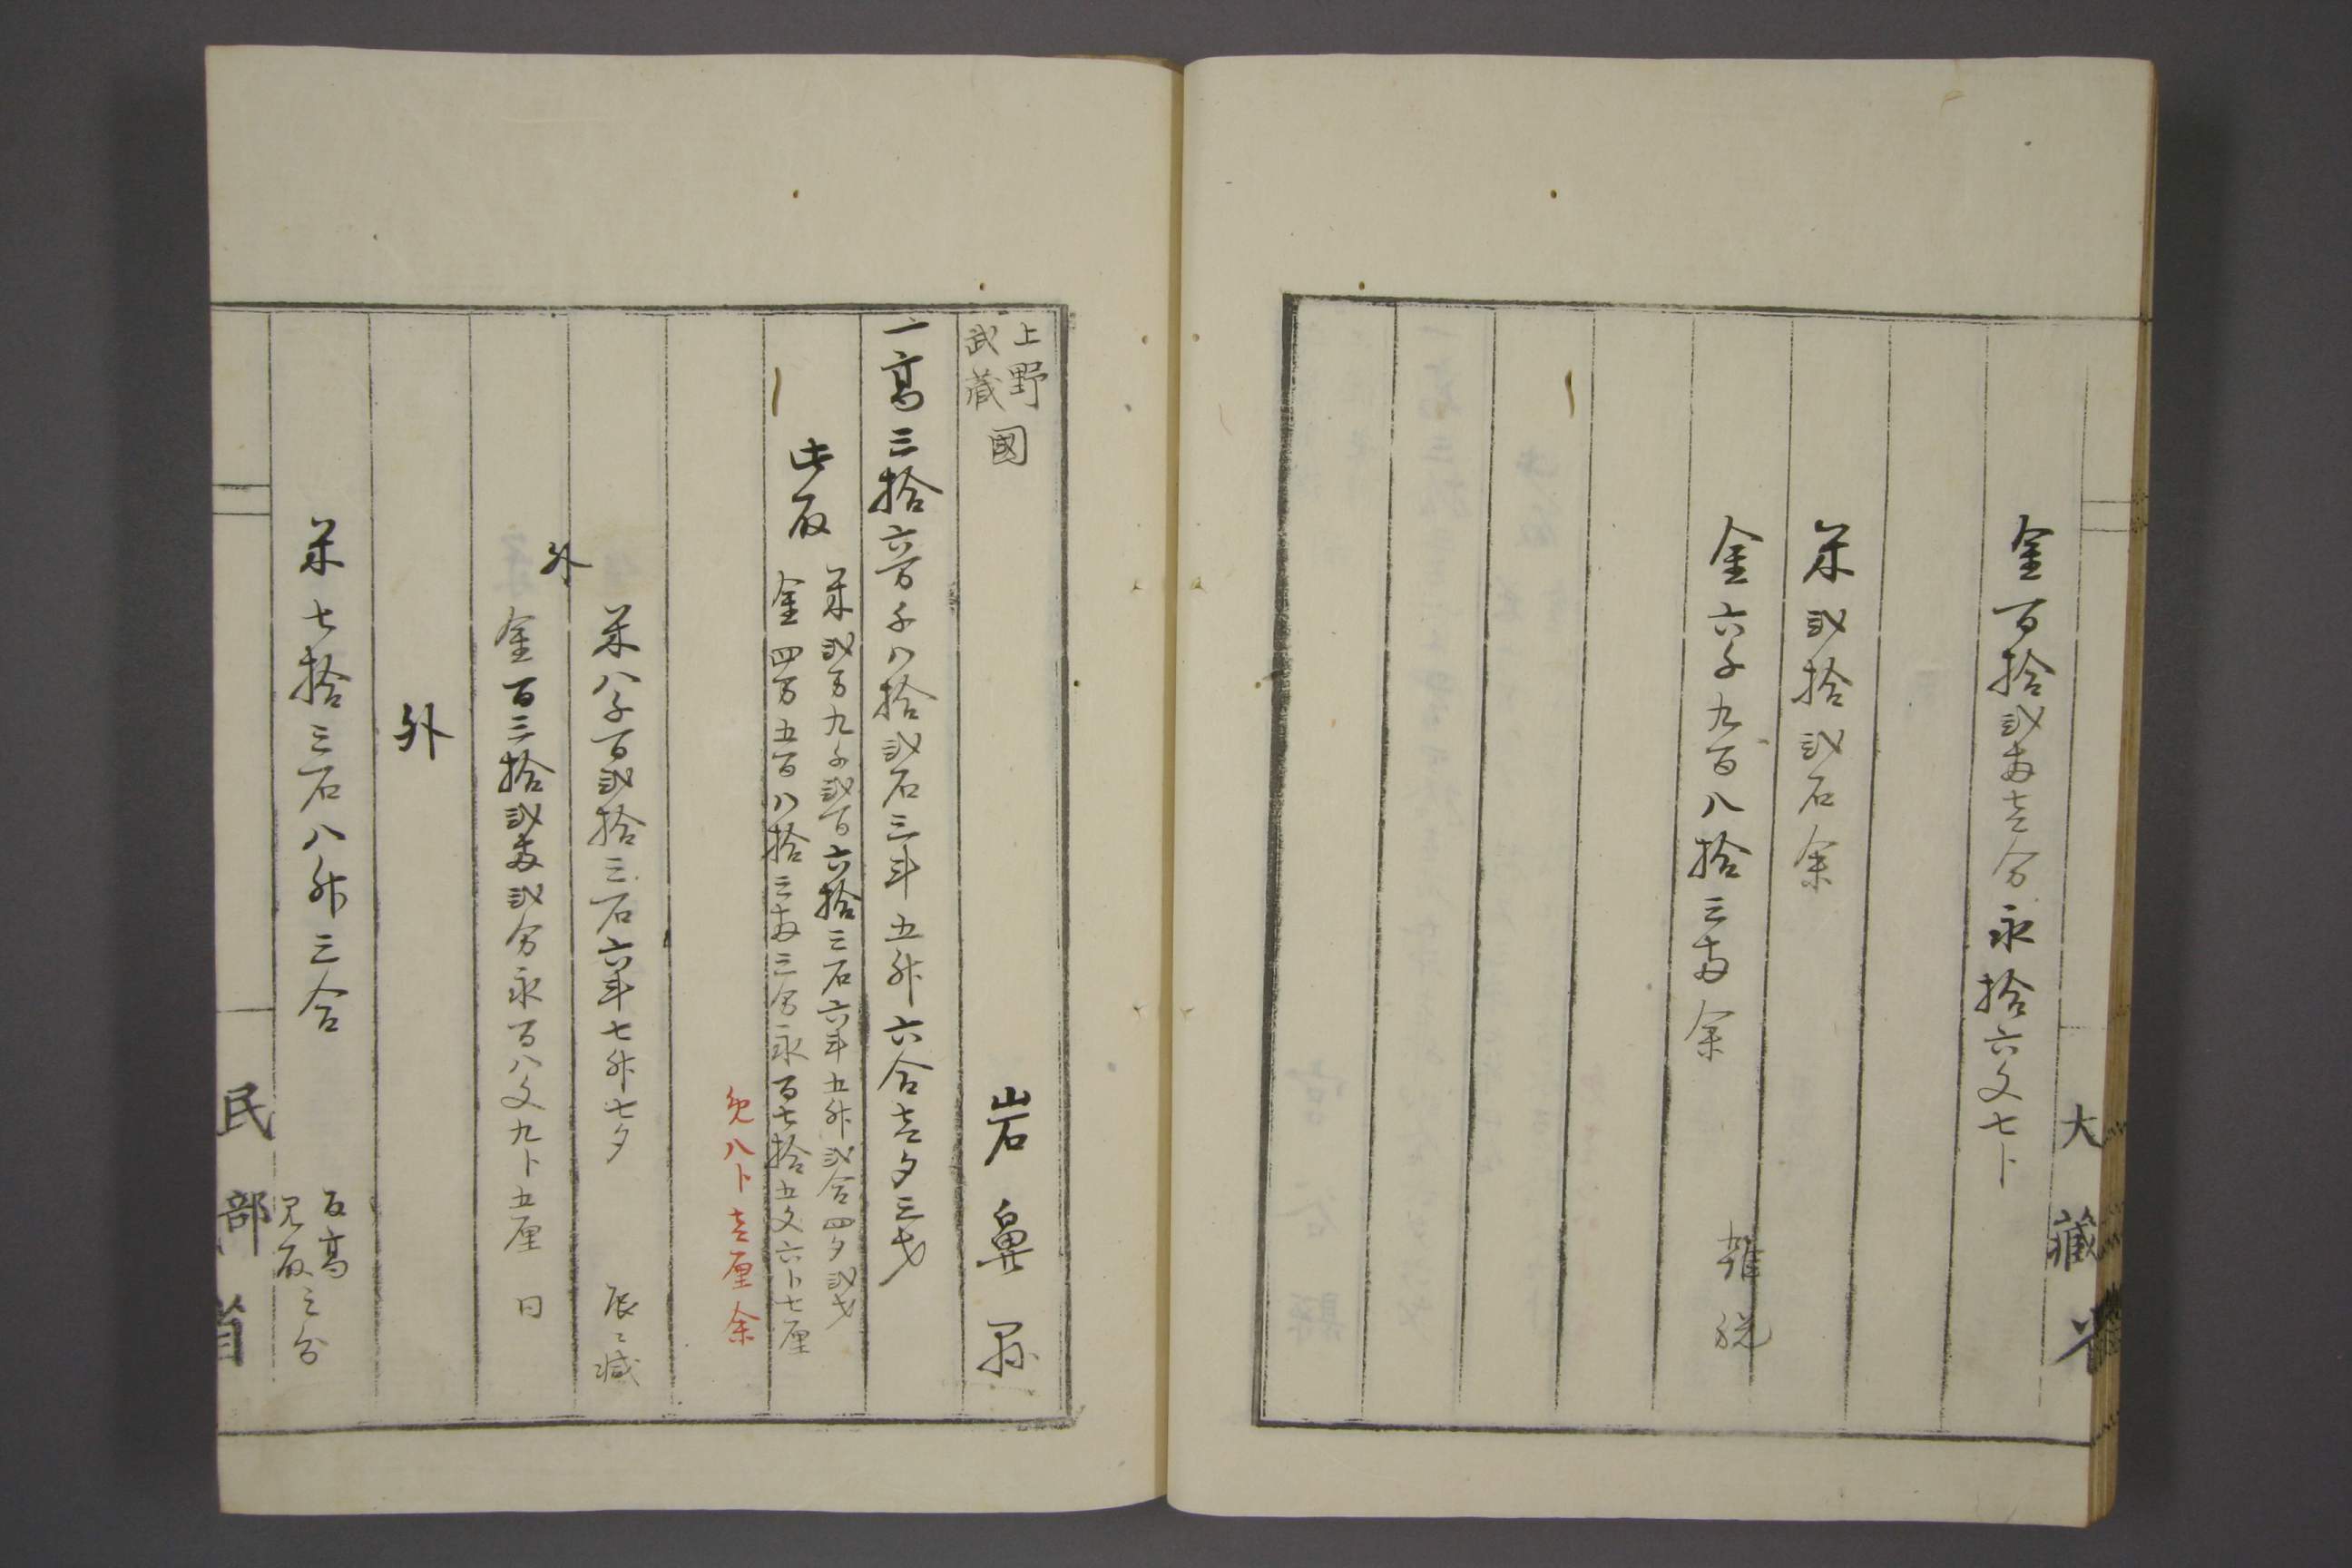 金百拾弐両壱分永拾六文七卜
米弐拾弐石余
金六千九百八拾三両余
雑税
大蔵省
上野
武蔵
國
岩鼻県
一高三拾六万千八拾弐石三斗五升六合壱夕三才
此取
米弐万九千弐百六拾三石六斗五升弐合四夕弐才
金四万五百八拾三両三分永百七拾五文六卜七厘
免八卜壱厘余
外
米八千百弐拾三石六斗七升七夕
辰ゟ減
金百三拾弐両弐分永百八文九卜五厘
同
外
米七拾三石八升三合
高
見取之分
民部省